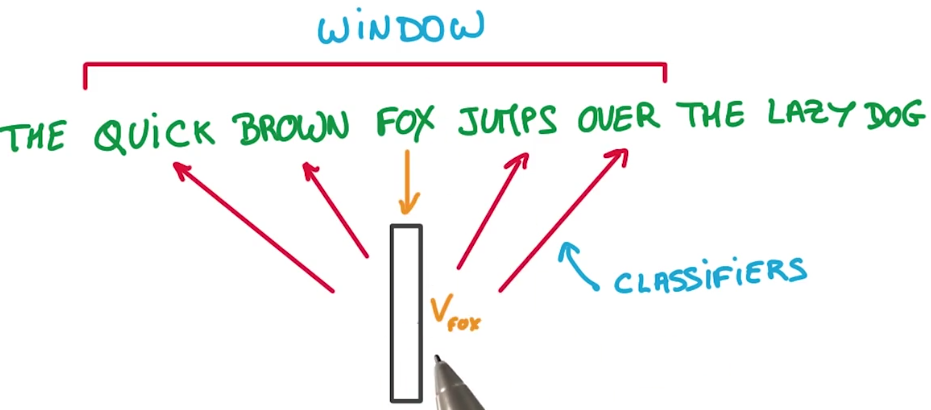 WiNDOW
THE QUiCK BROWN FOX JUMPS OVER THE LAZY DOG
CLASSiFiERS
V FOX